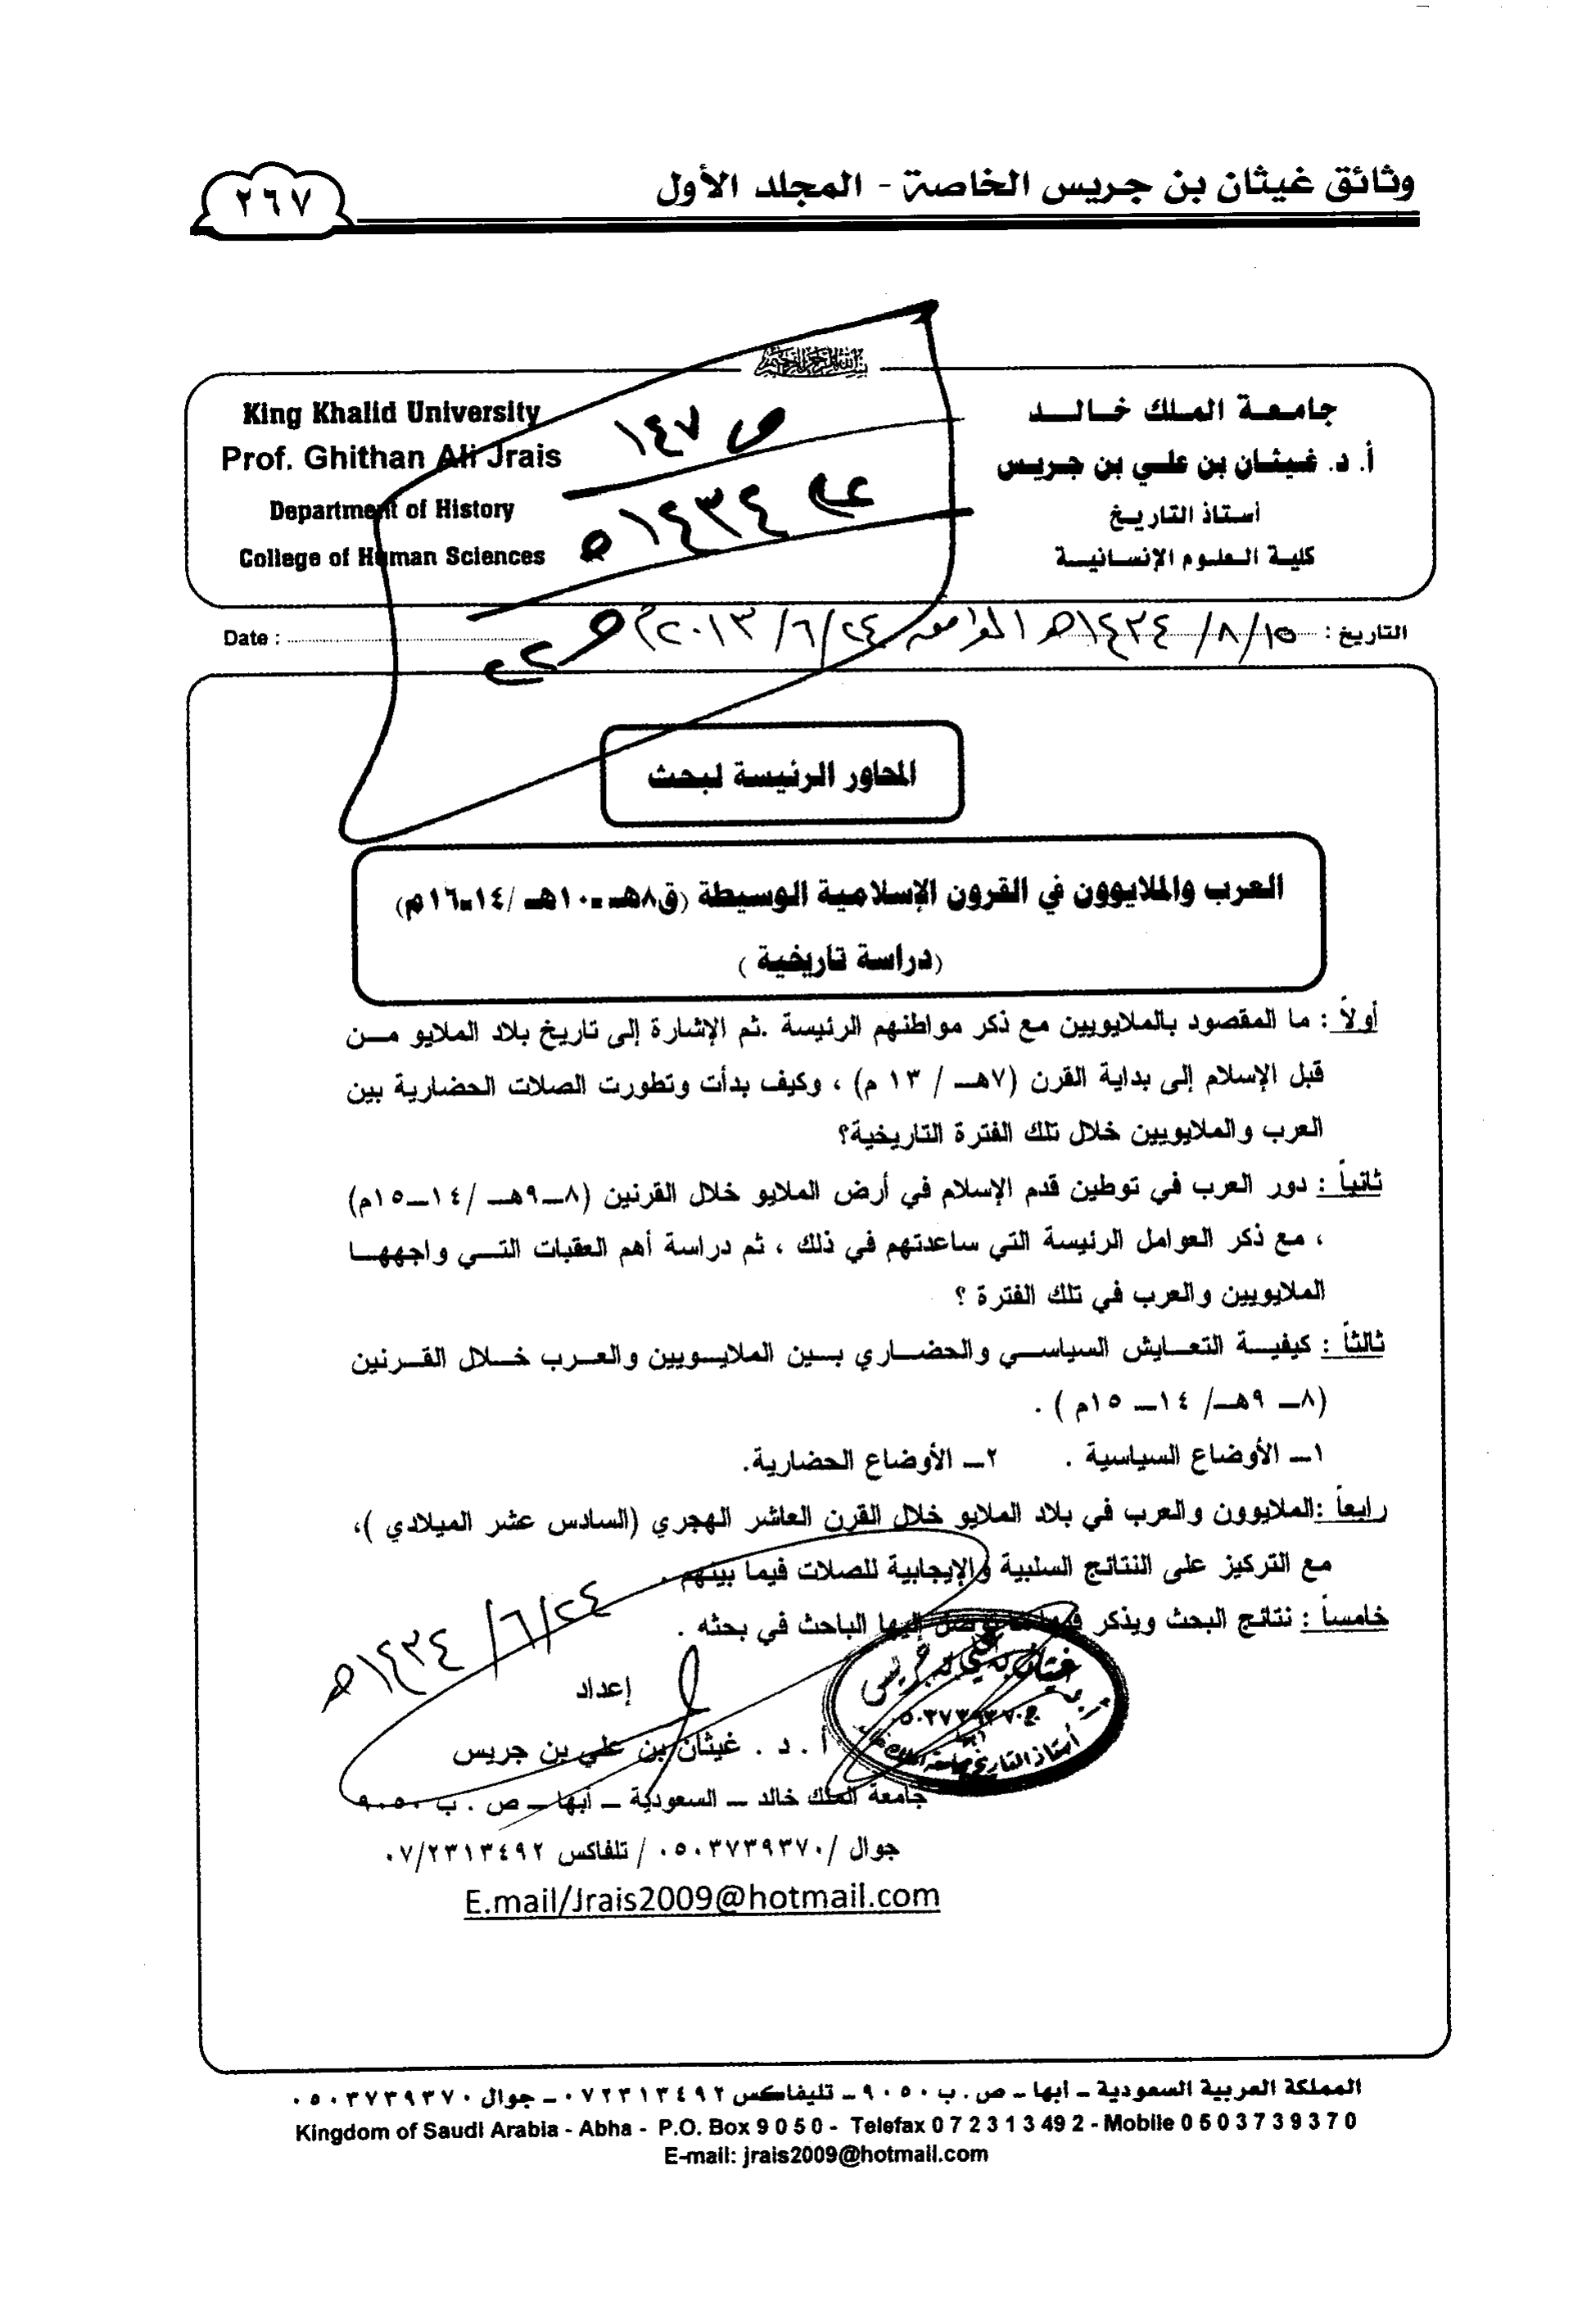 وثائق غيثان بن جريس الخاصة - المجلد الأول
٢٦٧
جامعة الملك خالد
أ. د. غيثان بن علي بن جريس
أستاذ التاريخ
كلية العلوم الإنسانية
King Khalid University
Prof. Ghithan Ali Jrais
Department of History
College of Human Sciences
ص ١٤٧
١٤٣٤ ه
التاريخ : ١٥/ ٨/ ١٤٣٤هـ الموافق ٢٤/ ٦/ ٢٠١٣م
Date :
المحاور الرئيسة لبحث
العرب والملايوون في القرون الإسلامية الوسيطة (ق٨هـ-١٠هـ /١٤-١٦م)
(دراسة تاريخية )
أولاً : ما المقصود بالملايويين مع ذكر مواطنهم الرئيسة .ثم الإشارة إلى تاريخ بلاد الملايو مـن
قبل الإسلام إلى بداية القرن (٧هـ / ١٣ م) ، وكيف بدأت وتطورت الصلات الحضارية بين
العرب والملايويين خلال تلك الفترة التاريخية؟
ثانياً : دور العرب في توطين قدم الإسلام في أرض الملايو خلال القرنين (٨ـ٩هـ /١٤ـ١٥م)
، مع ذكر العوامل الرئيسة التي ساعدتهم في ذلك ، ثم دراسة أهم العقبات التـي واجههـا
الملايويين والعرب في تلك الفترة ؟
ثالثاً : كيفيـة التعـايش السياسـي والحضـاري بـين الملايـويين والعـرب خـلال القـرنين
(٨ـ ٩هـ/ ١٤ـ ١٥م ) .
١ـ الأوضاع السياسية . ٢ـ الأوضاع الحضارية.
رابعاً :الملايوون والعرب في بلاد الملايو خلال القرن العاشر الهجري (السادس عشر الميلادي )،
مع التركيز على النتائج السلبية والإيجابية للصلات فيما بينهم .
خامساً : نتائج البحث ويذكر فيها ما توصل إليها الباحث في بحثه .
٢٤/ ٦/ ١٤٣٤هـ
إعداد
أ . د . غيثان بن علي بن جريس
غيثان بن علي بن جريس
ج ٠٥٠٣٧٣٩٣٧٠
أبها
أستاذ التاريخ بجامعة الملك خالد
جامعة الملك خالد ـ السعودية ـ أبها ـ ص . ب ٩٠٥٠
جوال /٠٥٠٣٧٣٩٣٧٠ / تلفاكس ٠٧/٢٣١٣٤٩٢
E.mail/Jrais2009@hotmail.com
المملكة العربية السعودية ـ أبها ـ ص. ب ٩٠٥٠ ـ تليفاكس ٠٧٢٣١٣٤٩٢ ـ جوال ٠٥٠٣٧٣٩٣٧٠
Kingdom of Saudi Arabia - Abha - P.O. Box 9 0 5 0 - Telefax 0 7 2 3 1 3 49 2 - Mobile 0 5 0 3 7 3 9 3 7 0
E-mail: jrais2009@hotmail.com